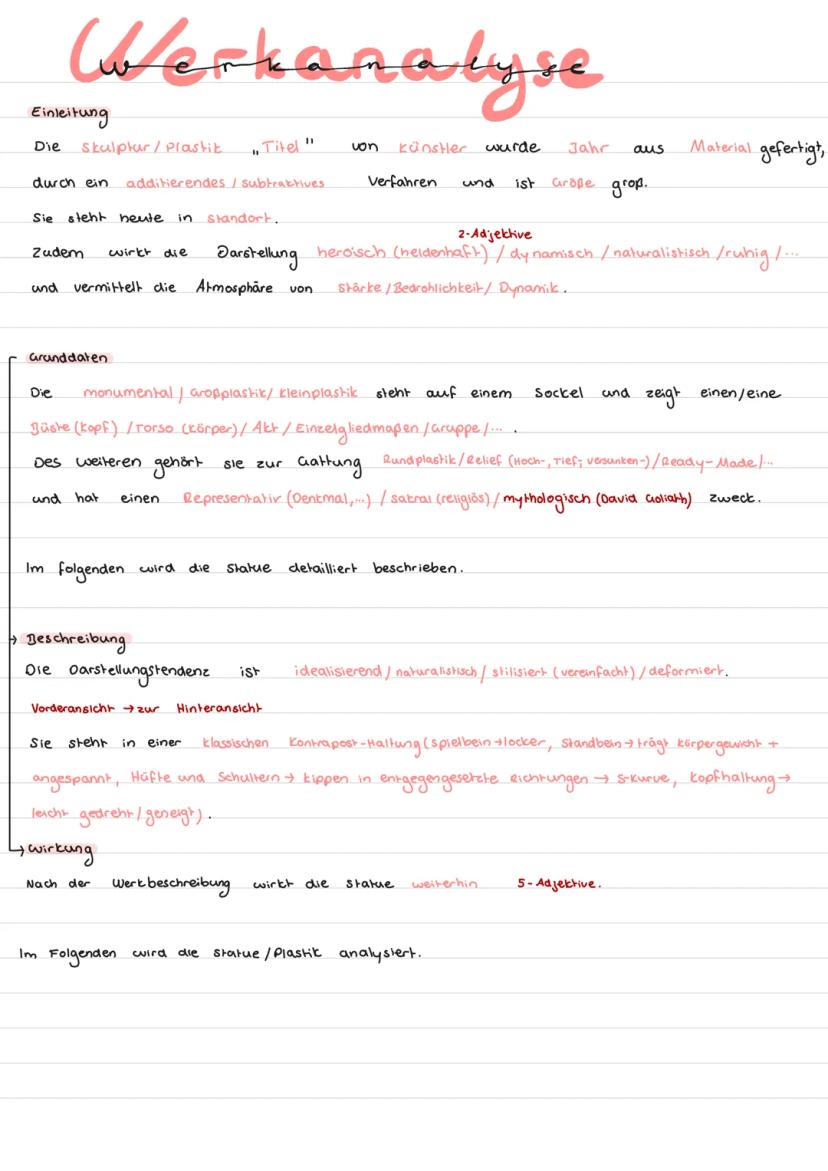 Werkanalyse
Einleitung
Die Skulptur/Plastik „Titel" von Künstler wurde Jahr aus Material gefertigt,
durch ein additierendes/subtraktives Verfahren und ist Größe groß.
Sie steht heute in Standort.
2-Adjektive
Zudem wirkt die Darstellung heroisch (heldenhaft) / dynamisch / naturalistisch /ruhig /...
und vermittelt die Atmosphäre von Stärke/Bedrohlichkeit/ Dynamik.
Grunddaten
Die monumental / Großplastik/ Kleinplastik steht auf einem Sockel und zeigt einen/eine
Büste (Kopf) /Torso (Körper)/ Akt / Einzelgliedmaßen /Gruppe/... .
Des weiteren gehört sie zur Gattung Rundplastik/Relief (Hoch-, Tief; versunken-)/Ready-Made/...
und hat einen Representativ (Denkmal,...) / sakral (religiös) / mythologisch (David Goliath) zweck.
Im folgenden wird die Statue detailliert beschrieben.
Beschreibung
Die Darstellungstendenz ist idealisierend / naturalistisch / stilisiert (vereinfacht) / deformiert.
Vorderansicht → zur Hinteransicht
Sie steht in einer klassischen Kontrapost-Haltung (Spielbein→locker, Standbein→ trägt Körpergewicht +
angespannt, Hüfte und Schultern → kippen in entgegengesetzte Richtungen → S-Kurve, Kopfhaltung→
leicht gedreht/geneigt).
Wirkung
Nach der Werkbeschreibung wirkt die Statue weiterhin 5-Adjektive.
Im Folgenden wird die Statue/Plastik analysiert.